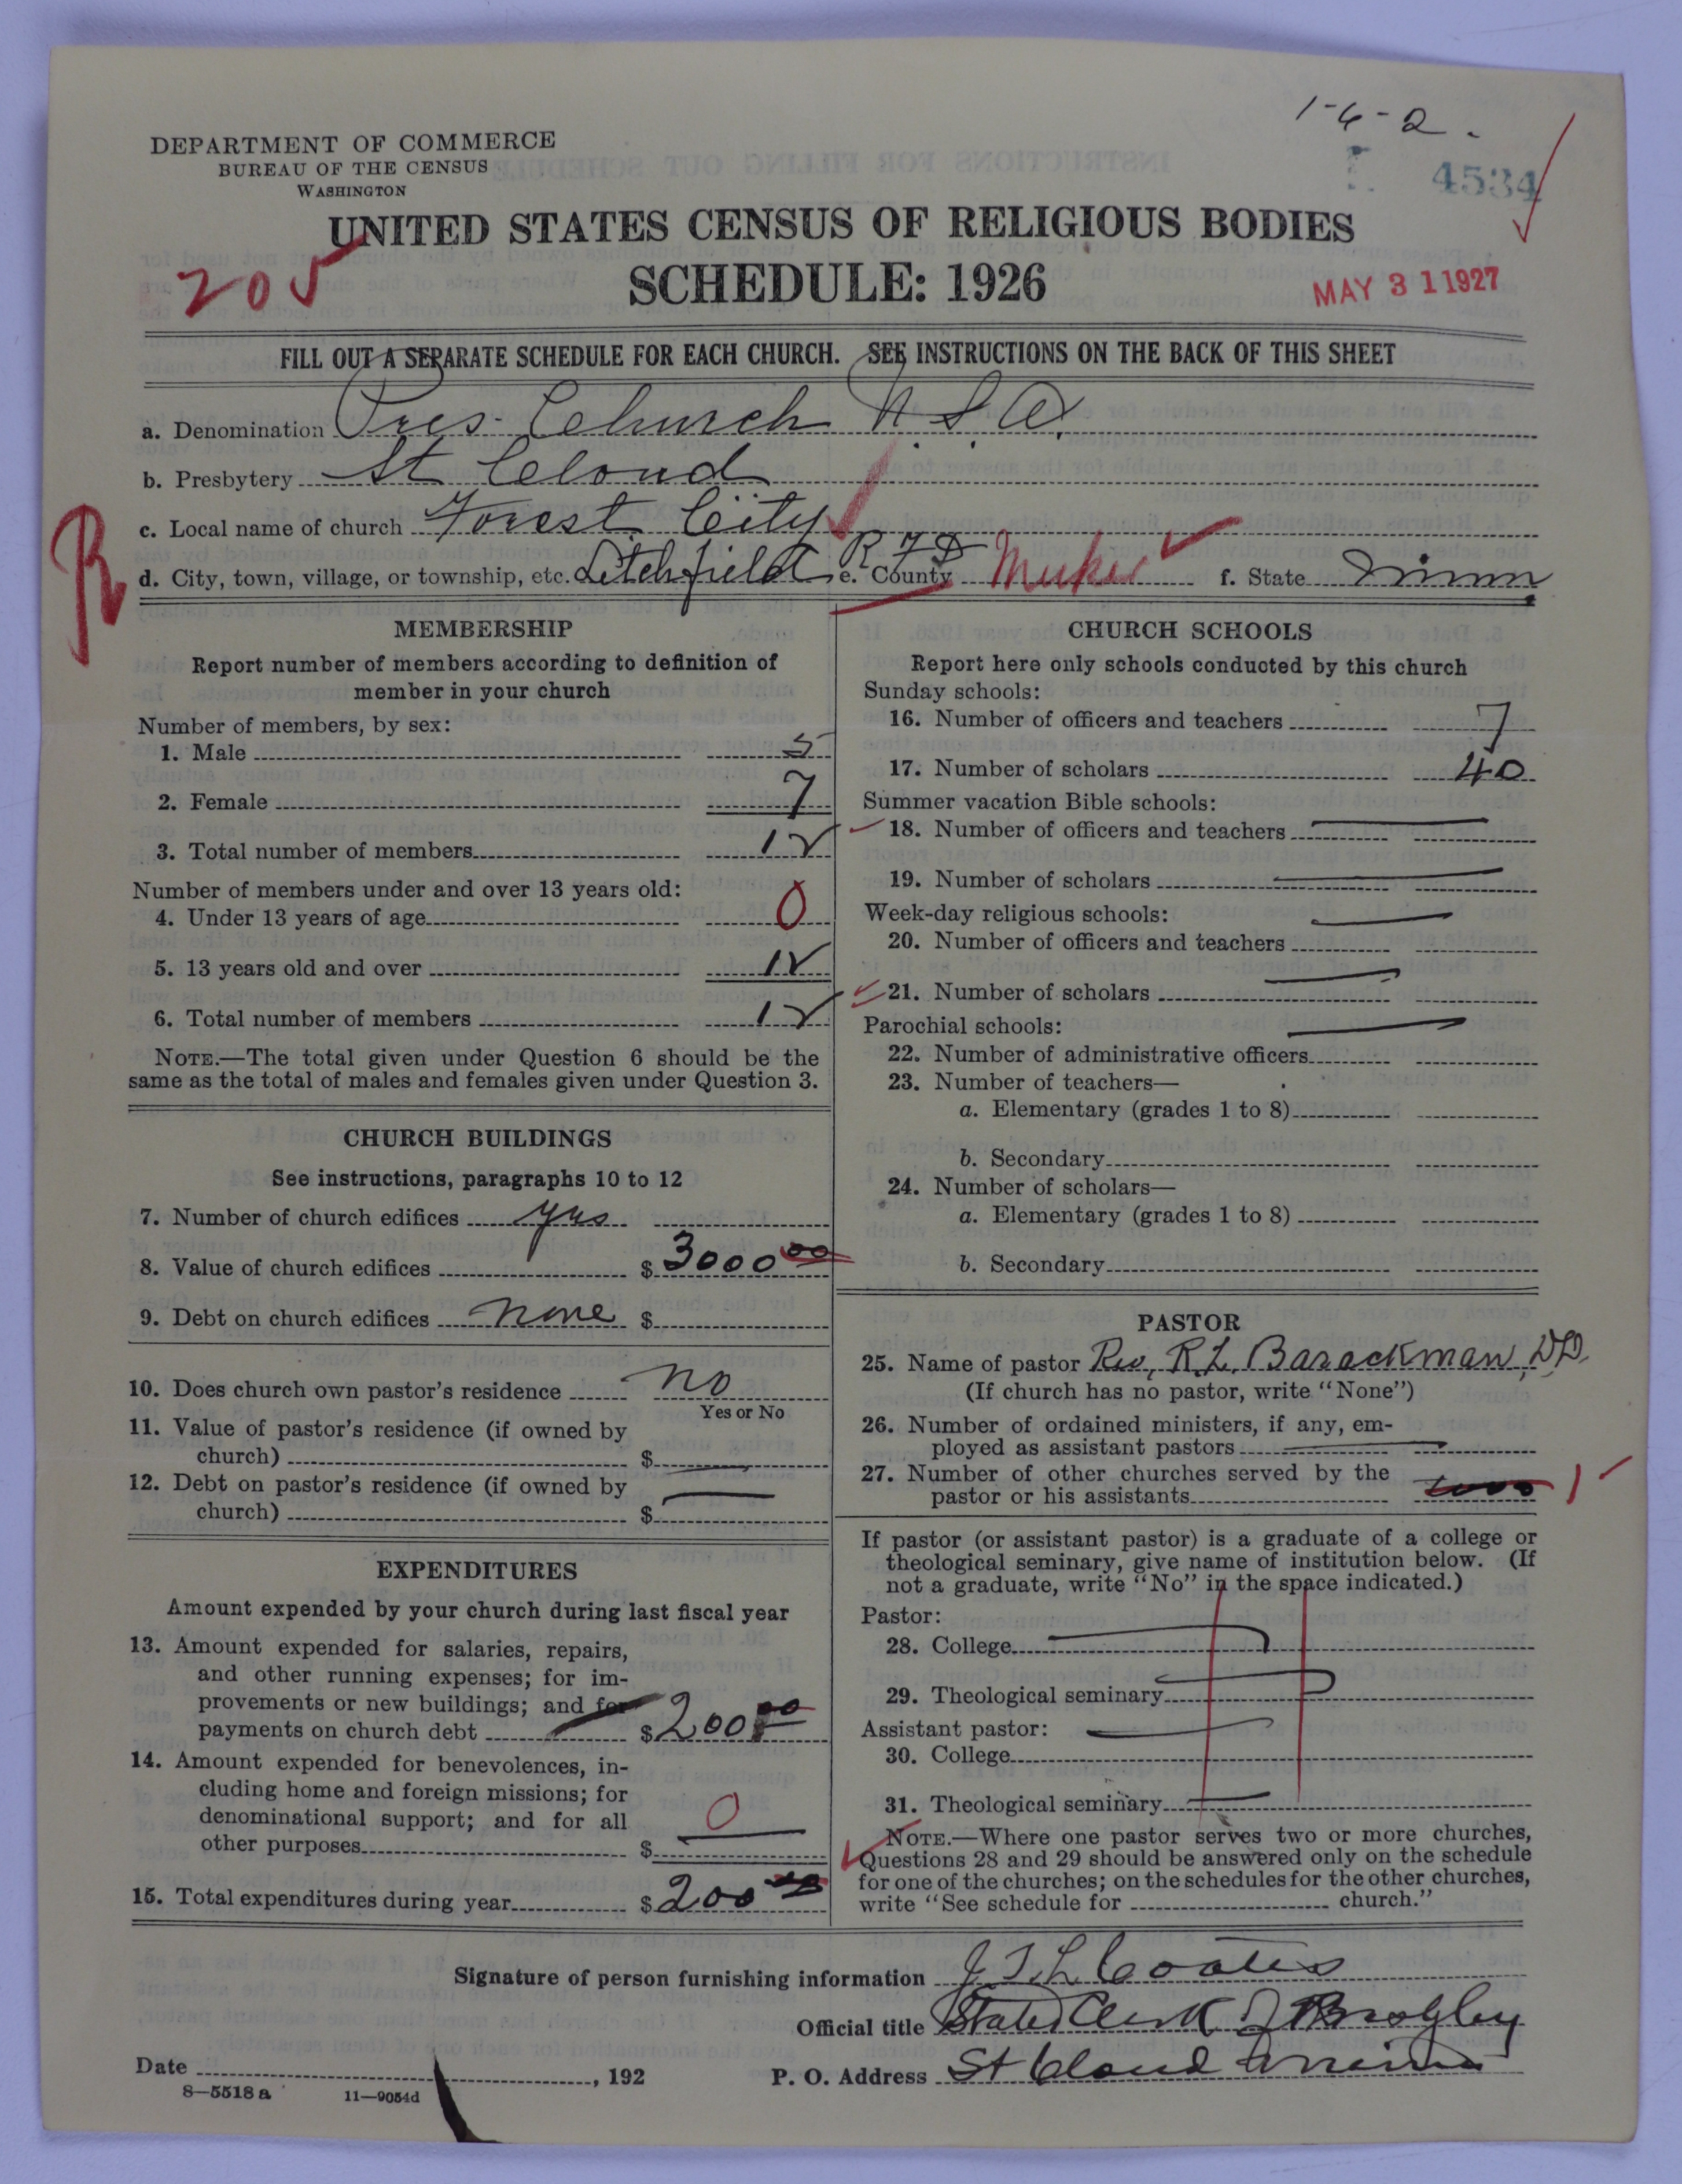 1-6-2.
4534
DEPARTMENT OF COMMERCE
BUREAU OF THE CENSUS
WASHINGTON
UNITED STATES CENSUS OF RELIGIOUS BODIES
205
SCHEDULE: 1926
MAY 31 1927
FILL OUT A SEPARATE SCHEDULE FOR EACH CHURCH. SEE INSTRUCTIONS ON THE BACK OF THIS SHEET
a. Denomination Pres. Church U.S.A.
b. Presbytery St Cloud
c. Local name of church Forest City
R
d. City, town, village, or township, etc. Litchfield R F D e. County Meeker f. State Minn
MEMBERSHIP
Report number of members according to definition of
member in your church
Number of members, by sex:
1. Male 5
2. Female 7
3. Total number of members 12
Number of members under and over 13 years old:
4. Under 13 years of age 0
5. 13 years old and over 12
6. Total number of members 12
NOTE.—The total given under Question 6 should be the
same as the total of males and females given under Question 3.
CHURCH BUILDINGS
See instructions, paragraphs 10 to 12
7. Number of church edifices yes
8. Value of church edifices $ 3000 00
9. Debt on church edifices none $
10. Does church own pastor's residence no
Yes or No
11. Value of pastor's residence (if owned by
church) $
12. Debt on pastor's residence (if owned by
church) $
EXPENDITURES
Amount expended by your church during last fiscal year
13. Amount expended for salaries, repairs,
and other running expenses; for im-
provements or new buildings; and for
payments on church debt $ 200 00
14. Amount expended for benevolences, in-
cluding home and foreign missions; for
denominational support; and for all
other purposes $ 0
15. Total expenditures during year $ 200
CHURCH SCHOOLS
Report here only schools conducted by this church
Sunday schools:
16. Number of officers and teachers 7
17. Number of scholars 40
Summer vacation Bible schools:
18. Number of officers and teachers
19. Number of scholars
Week-day religious schools:
20. Number of officers and teachers
21. Number of scholars
Parochial schools:
22. Number of administrative officers
23. Number of teachers—
a. Elementary (grades 1 to 8)
b. Secondary
24. Number of scholars—
a. Elementary (grades 1 to 8)
b. Secondary
PASTOR
25. Name of pastor Rev. R. L. Barackman, DD.
(If church has no pastor, write "None")
26. Number of ordained ministers, if any, em-
ployed as assistant pastors
27. Number of other churches served by the
pastor or his assistants 1
If pastor (or assistant pastor) is a graduate of a college or
theological seminary, give name of institution below. (If
not a graduate, write "No" in the space indicated.)
Pastor:
28. College
29. Theological seminary
Assistant pastor:
30. College
31. Theological seminary
NOTE.—Where one pastor serves two or more churches,
Questions 28 and 29 should be answered only on the schedule
for one of the churches; on the schedules for the other churches,
write "See schedule for church."
Signature of person furnishing information J. T. L. Coates
Official title Stated Clerk
P. O. Address St Cloud Minn
Date , 192
8—5518 a 11—9054d